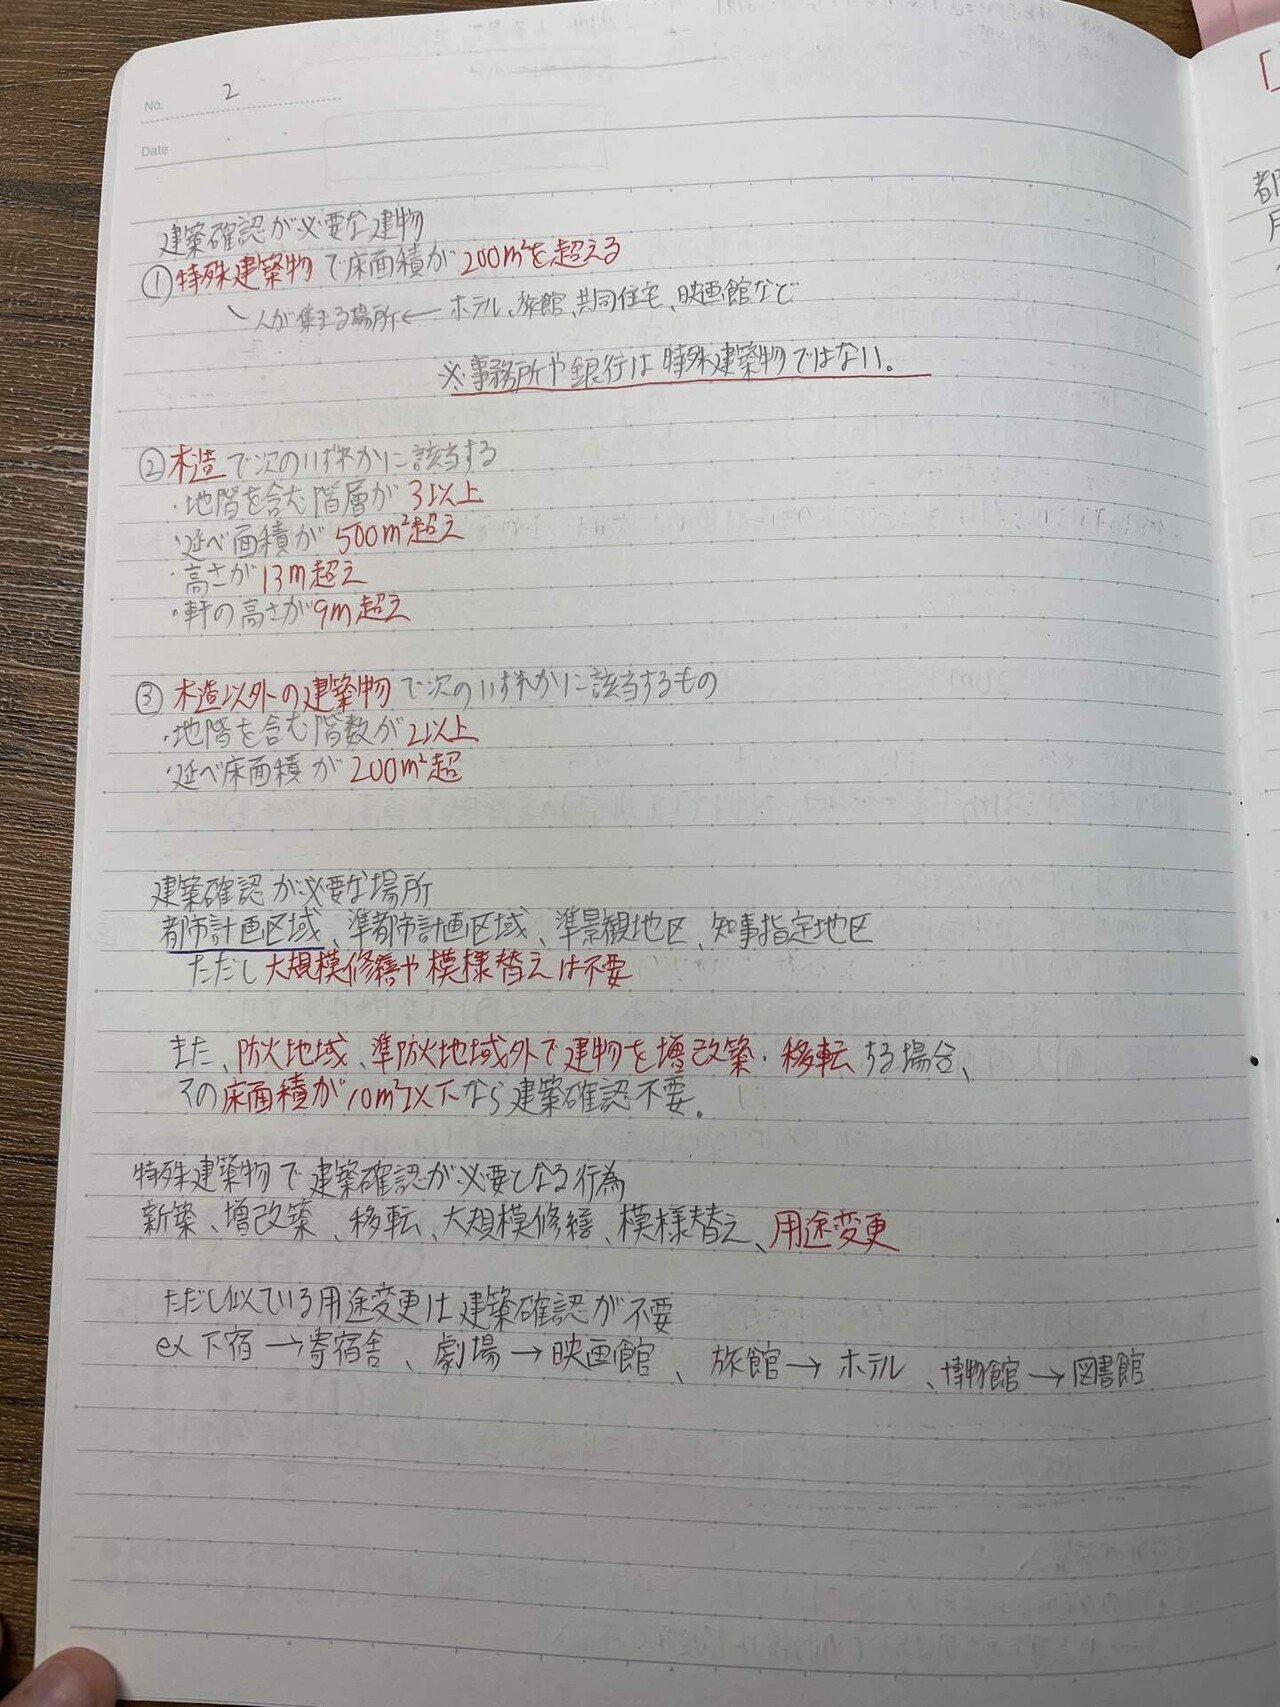 No. 2
Date
建築確認が必要な建物
①特殊建築物で床面積が200m²を超える
人が集まる場所←ホテル、旅館、共同住宅、映画館など
※事務所や銀行は特殊建築物ではない。
②木造で次のいずれかに該当する
・地階を含む階層が3以上
・延べ面積が500m²超え
・高さが13m超え
・軒の高さが9m超え
③木造以外の建築物で次のいずれかに該当するもの
・地階を含む階数が2以上
・延べ床面積が200m²超
建築確認が必要な場所
都市計画区域、準都市計画区域、準景観地区、知事指定地区
ただし大規模修繕や模様替えは不要
また、防火地域、準防火地域外で建物を増改築・移転する場合、
その床面積が10m²以下なら建築確認不要。
特殊建築物で建築確認が必要となる行為
新築、増改築、移転、大規模修繕、模様替え、用途変更
ただし似ている用途変更は建築確認が不要
ex 下宿→寄宿舎、劇場→映画館、旅館→ホテル、博物館→図書館
都